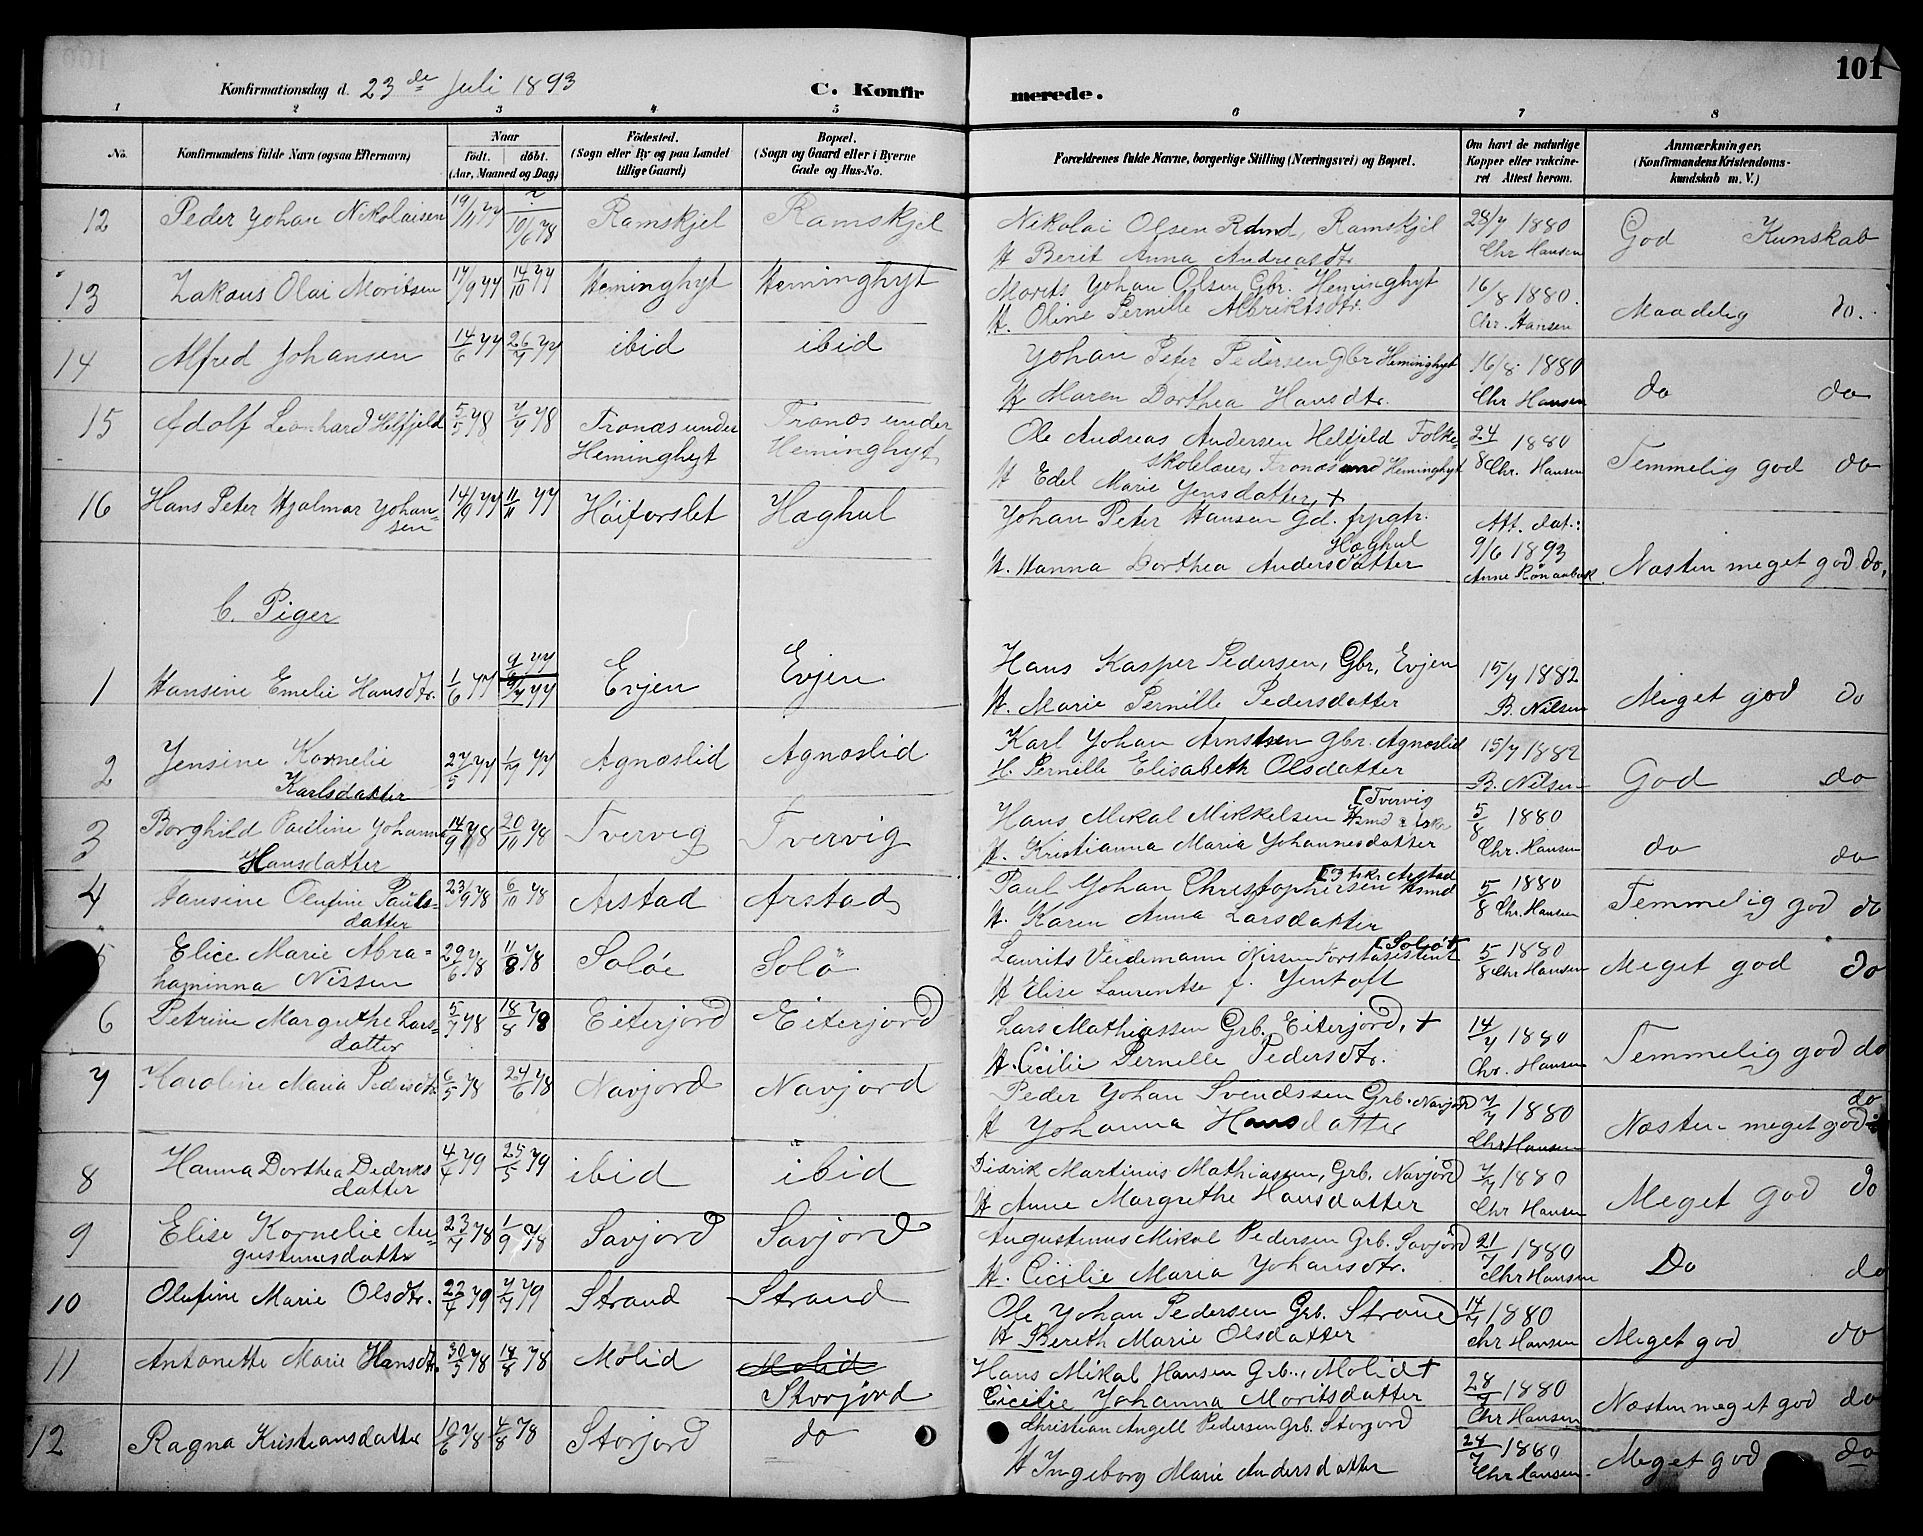 101
Konfirmationsdag d. 23de Juli 1893
C. Konfir merede.
1 2 3 4 5 6 7 8
No. Konfirmandens fulde Navn (ogsaa Efternavn) Naar födt. döbt. (Aar, Maaned og Dag) Födested. (Sogn eller By og paa Landet tillige Gaard) Bopæl. (Sogn og Gaard eller i Byerne Gade og Hus-No. Forældrenes fulde Navne, borgerlige Stilling (Næringsvei) og Bopæl. Om havt de naturlige Kopper eller vakcineret Attest herom. Anmærkninger. (Konfirmandens Kristendomskundskab m. V.)
12 Peder Johan Nikolaisen 19/11 77 10/6 78 Ramskjel Ramskjel Nikolai Olsen Ramskjel 28/7 1880 God Kunskab
H Berit Anna Andreasdtr. Chr Hansen
13 Zakæus Olai Moritsen 17/9 77 14/10 77 Heminghyt Heminghyt Morits Johan Olsen Gbr. Heminghyt 16/8 1880. Maadelig do.
H. Oline Pernille Albriktsdtr. Chr. Hansen
14 Alfred Johansen 14/6 77 26/7 77 ibid ibid Johan Peter Pedersen Gbr Heminghyt 16/8 1880 do do
H Maren Dorthea Hansdtr. Chr Hansen
15 Adolf Leonhard Helfjeld 5/5 78 7/7 78 Tronæs under Heminghyt Tronæs under Heminghyt Ole Andreas Andersen Helfjeld Folke- 24/8 1880 Temmelig god do
skolelærer, Tronæs und Heminghyt Chr. Hansen
H Edel Marie Jensdatter +
16 Hans Peter Hjalmar Johansen 14/9 77 11/11 77 Høiforslet Hæghul Johan Peter Hansen Gd. Hæghul Att. dat.: 9/6 1893
H. Hanna Dorthea Andersdatter Anne Rønaabæk Næsten meget god do.
C. Piger
1 Hansine Emelie Hansdtr. 1/6 77 Evjen Evjen Hans Kasper Pedersen, Gbr, Evjen 15/7 1882 Meget god do
H. Marie Pernille Pedersdatter B. Nilsen
2 Jensine Kornelie Karlsdatter 27/5 77 1/9 77 Agnæslid Agnæslid Karl Johan Arntsen Gbr. Agnæslid 15/7 1882 God do
H. Pernille Elisabeth Olsdatter B. Nilsen
3 Borghild Pauline Johanna Hansdatter 14/9 78 20/10 78 Tvervig Tvervig Hans Mikal Mikkelsen [Tvervig 5/8 1880 do do
H. Kristianna Maria Johannesdatter Chr. Hansen
4 Hansine Olufine Paulsdatter 23/9 78 6/10 78 Arstad Arstad Paul Johan Christophersen Hsmd [Arstad 5/8 1880 Temmelig god do
H. Karen Anna Larsdatter Chr. Hansen
5 Elice Marie Abrahaminna Nissen 29/6 78 11/8 78 Soløe Solø Laurits Veidemann Nissen Forstasistent [Solø + 5/8 1880 Meget god do
H Elise Laurentse f. Jentoft Chr Hansen
6 Petrine Margrethe Larsdatter 5/7 78 18/8 78 Eiterjord Eiterjord Lars Mathiassen Grb. Eiterjord, + 14/7 1880 Temmelig god do
H. Cicilie Pernelle Pedersdtr. Chr. Hansen
7 Karoline Maria Pedersdtr. 6/5 78 24/6 78 Navjord Navjord Peder Johan Svendssen Grb. Navjord 7/7 1880 Næsten meget god do
H Johanna Hansdatter Chr Hansen
8 Hanna Dorthea Dedriksdatter 4/4 79 25/5 79 ibid ibid Didrik Martinus Mathiassen, Grb. Navjord 7/7 1880 Meget god do
H Anne Margrethe Hansdatter Chr Hansen
9 Elise Kornelie Augustinusdatter 23/7 78 1/9 78 Savjord Savjord Augustinus Mikal Pedersen Grb. Savjord 21/7 1880 Do do
H. Cicilie Maria Johansdtr. Chr Hansen
10 Olufine Marie Olsdtr. 22/4 79 7/7 79 Strand Strand Ole Johan Pedersen Grb. Strand 14/7 1880 Meget god do
H Bereth Marie Olsdatter Chr Hansen
11 Antonette Marie Hansdtr. 30/5 78 18/8 78 Molid Molid Storjord Hans Mikal Hansen Grb., Molid + 28/7 1880 Næsten meget god do
Cicilie Johanna Moritsdatter Chr Hansen
12 Ragna Kristiansdatter 10/6 78 4/8 78 Storjord do Christian Angell Pedersen Grb. Storjord 28/7 1880 Meget god do
H Ingeborg Marie Andersdatter Chr Hansen